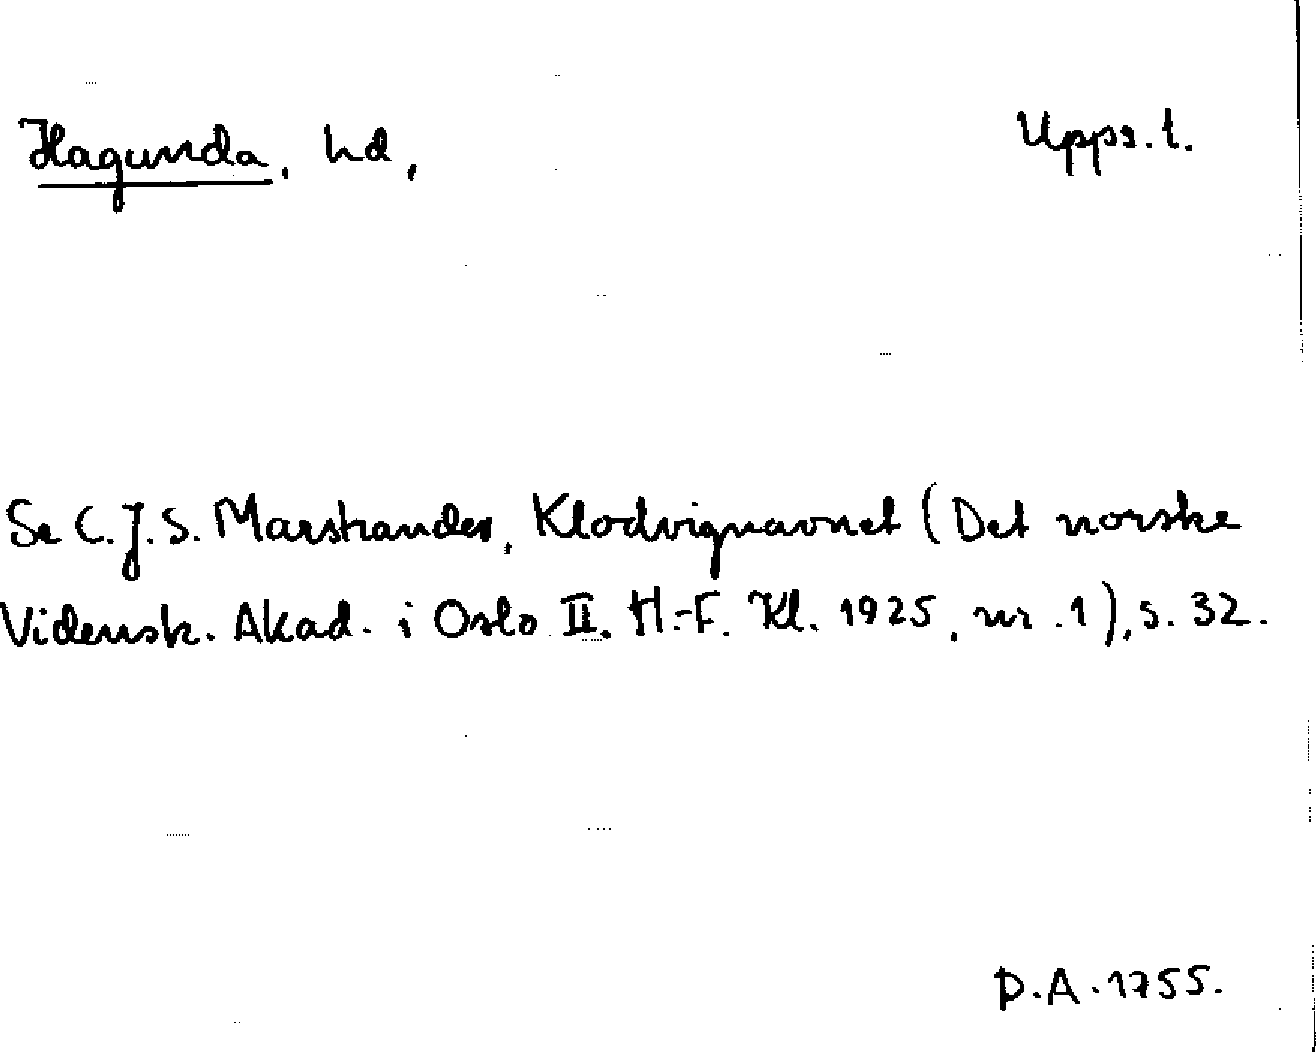 Hagunda, hd,
Upps. l.
Se C.J.S. Marstrander, Klodvignavnet (Det norske
Vidensk. Akad. i Oslo II. H.-F. Kl. 1925, nr. 1), s. 32.
D.A. 1755.